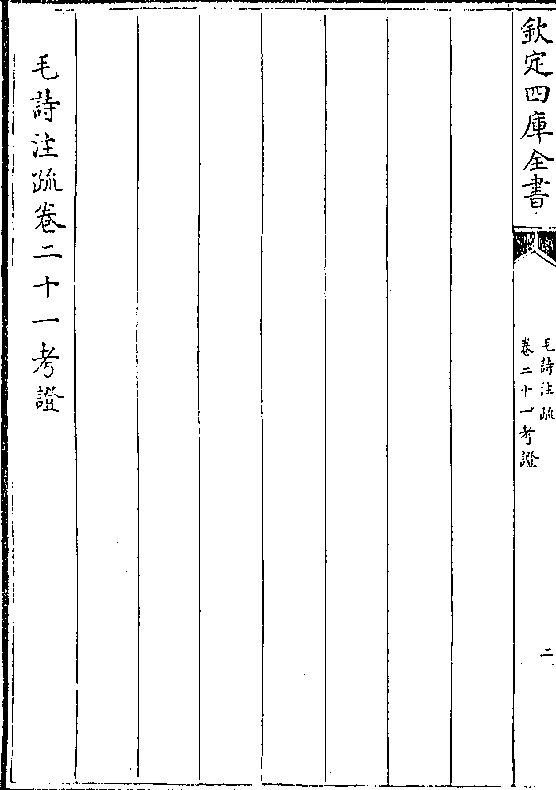 欽定四庫全書
毛詩注疏
卷二十一考證
二
毛詩注疏卷二十一考證